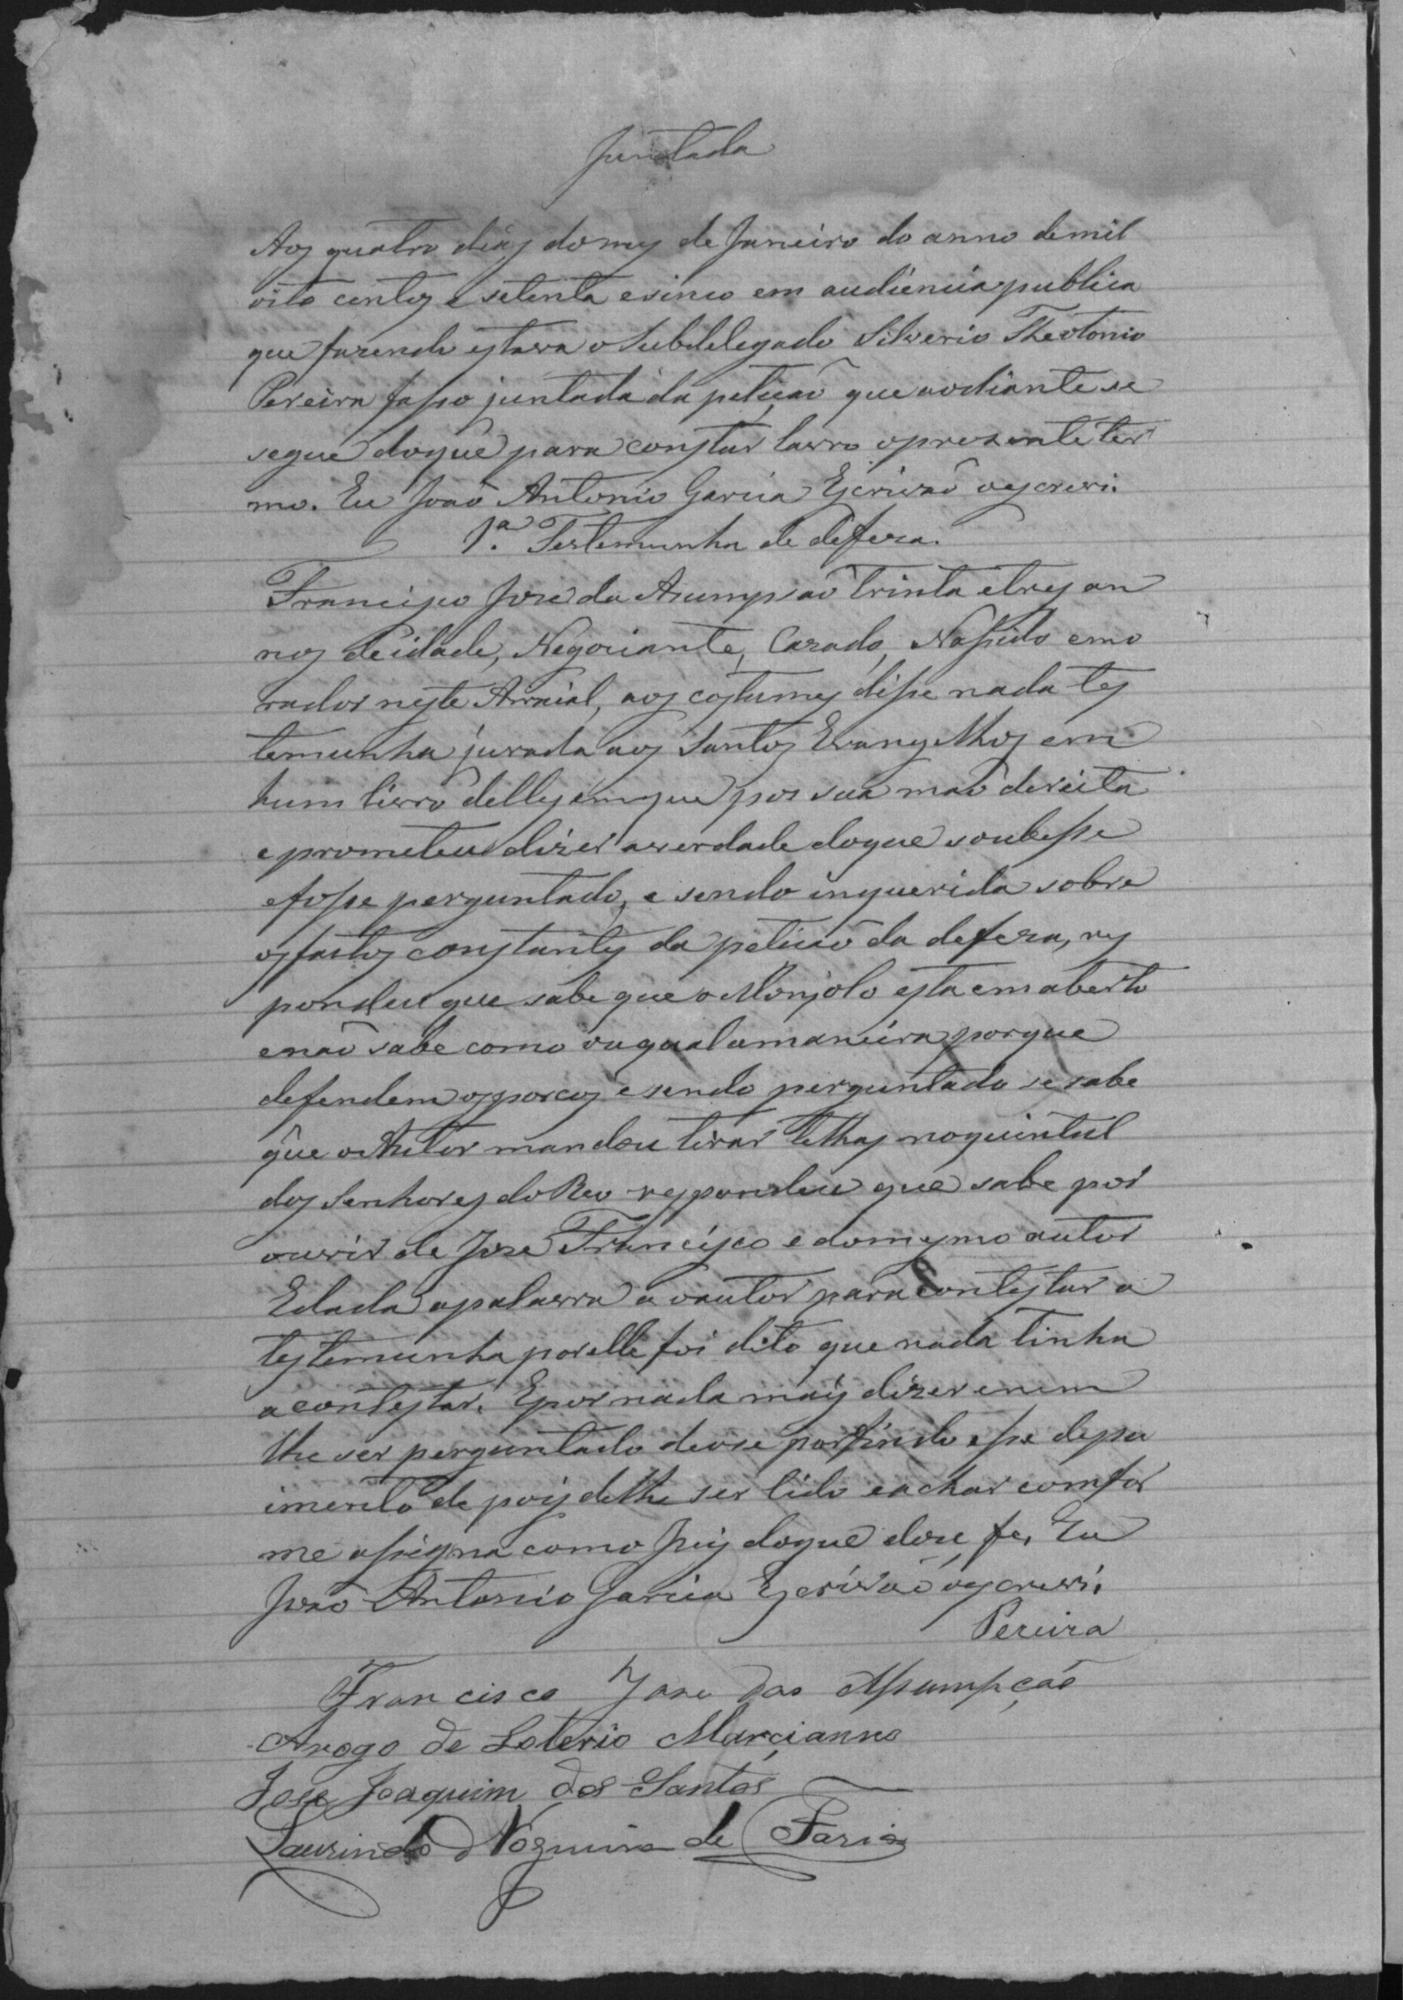 Juntada
Aos quatro dias do mes de Janeiro do anno de mil
oito centos e setenta e sinco em audiencia publica
que fazendo estava o Subdelegado Silverio Theotonio
Pereira fasso juntada da petição que aodiante se
segue doque para constar lavro o prezente ter
mo. Eu João Antonio Garcia Escrivão o escrevi.
1.ª Testemunha de defeza.
Francisco Jose da Asumpsão trinta e tres an
nos de idade, Negociante, Cazado, Nassido e mo
rador neste Arraial, aos costumes disse nada tes
temunha jurada aos Santos Evangelhos em
hum livro delles em que pos sua mão direita
e prometeu dizer a verdade doque soubesse
e fosse perguntado, e sendo inquerida sobre
os factos constantes da petição da defeza, res
pondeu que sabe que o Monjolo esta em aberto
e não sabe como ou qual a maneira porque
defendem os porcos e sendo perguntado se sabe
que o Autor mandou tirar telhas no quintal
dos Senhores do Reo respondeu que sabe por
ouvir de Jose Francisco e do mesmo autor
E dada a palavra a o autor para contestar a
testemunha por elle foi dito que nada tinha
a contestar. E por nada mais dizer e nem
lhe ser perguntado deose por findo esse depu
imento de pois de lhe ser lido e achar comfor
me assigna como Juis doque dou fe. Eu
João Antonio Garcia Escrivão o escrevi.
Pereira
Francisco Jose das Assumpção
Arogo de Loterio Marcianno
Jose Joaquim dos Santos
Laurindo Nogueira de Faria